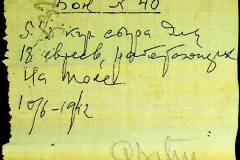 Бон № 40
5 1/2 кгр сыра для
18 евреев, работающих
на поле
10/6-1942